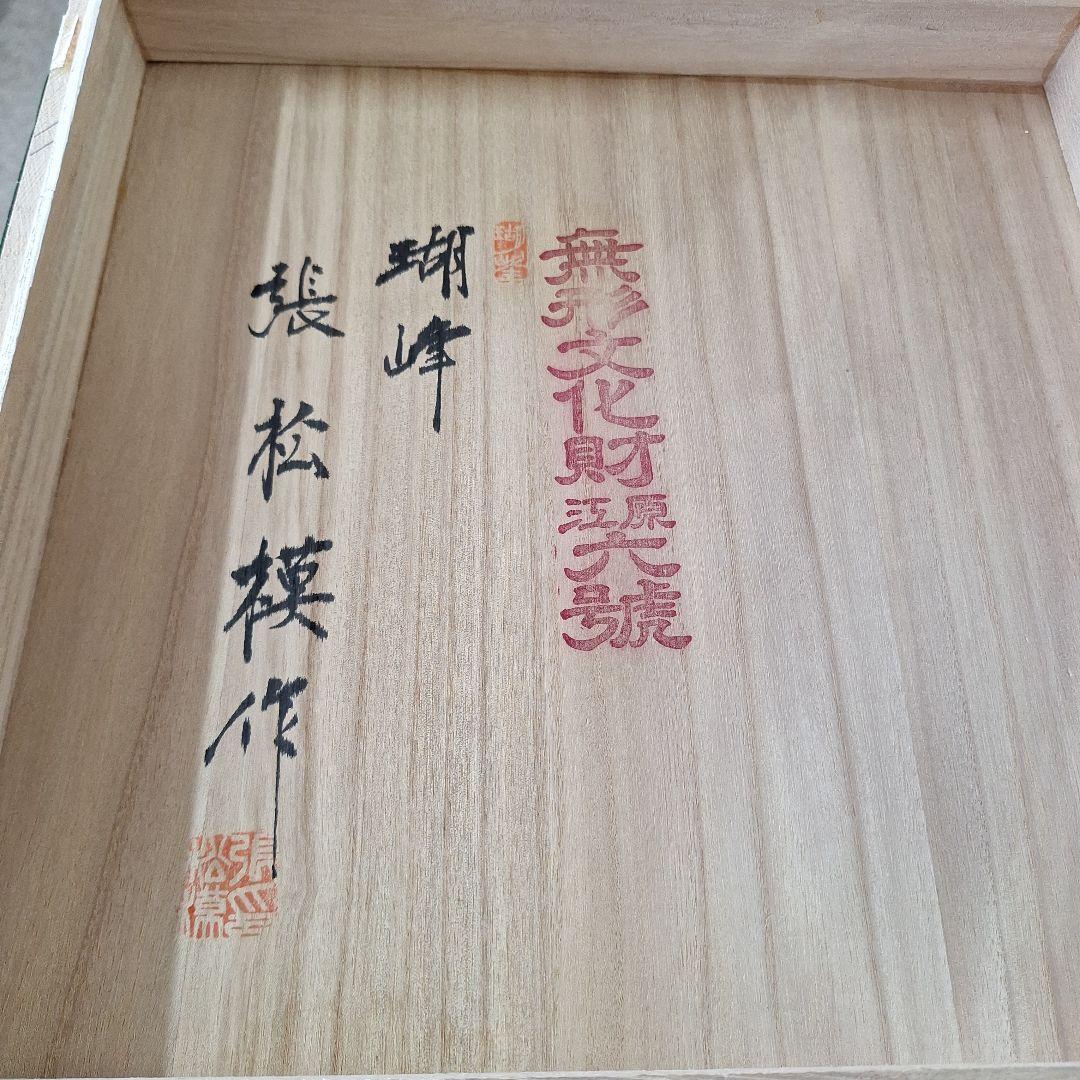 無形文化財
江原
六號
瑚峰
瑚峰
張松模作
張松模印